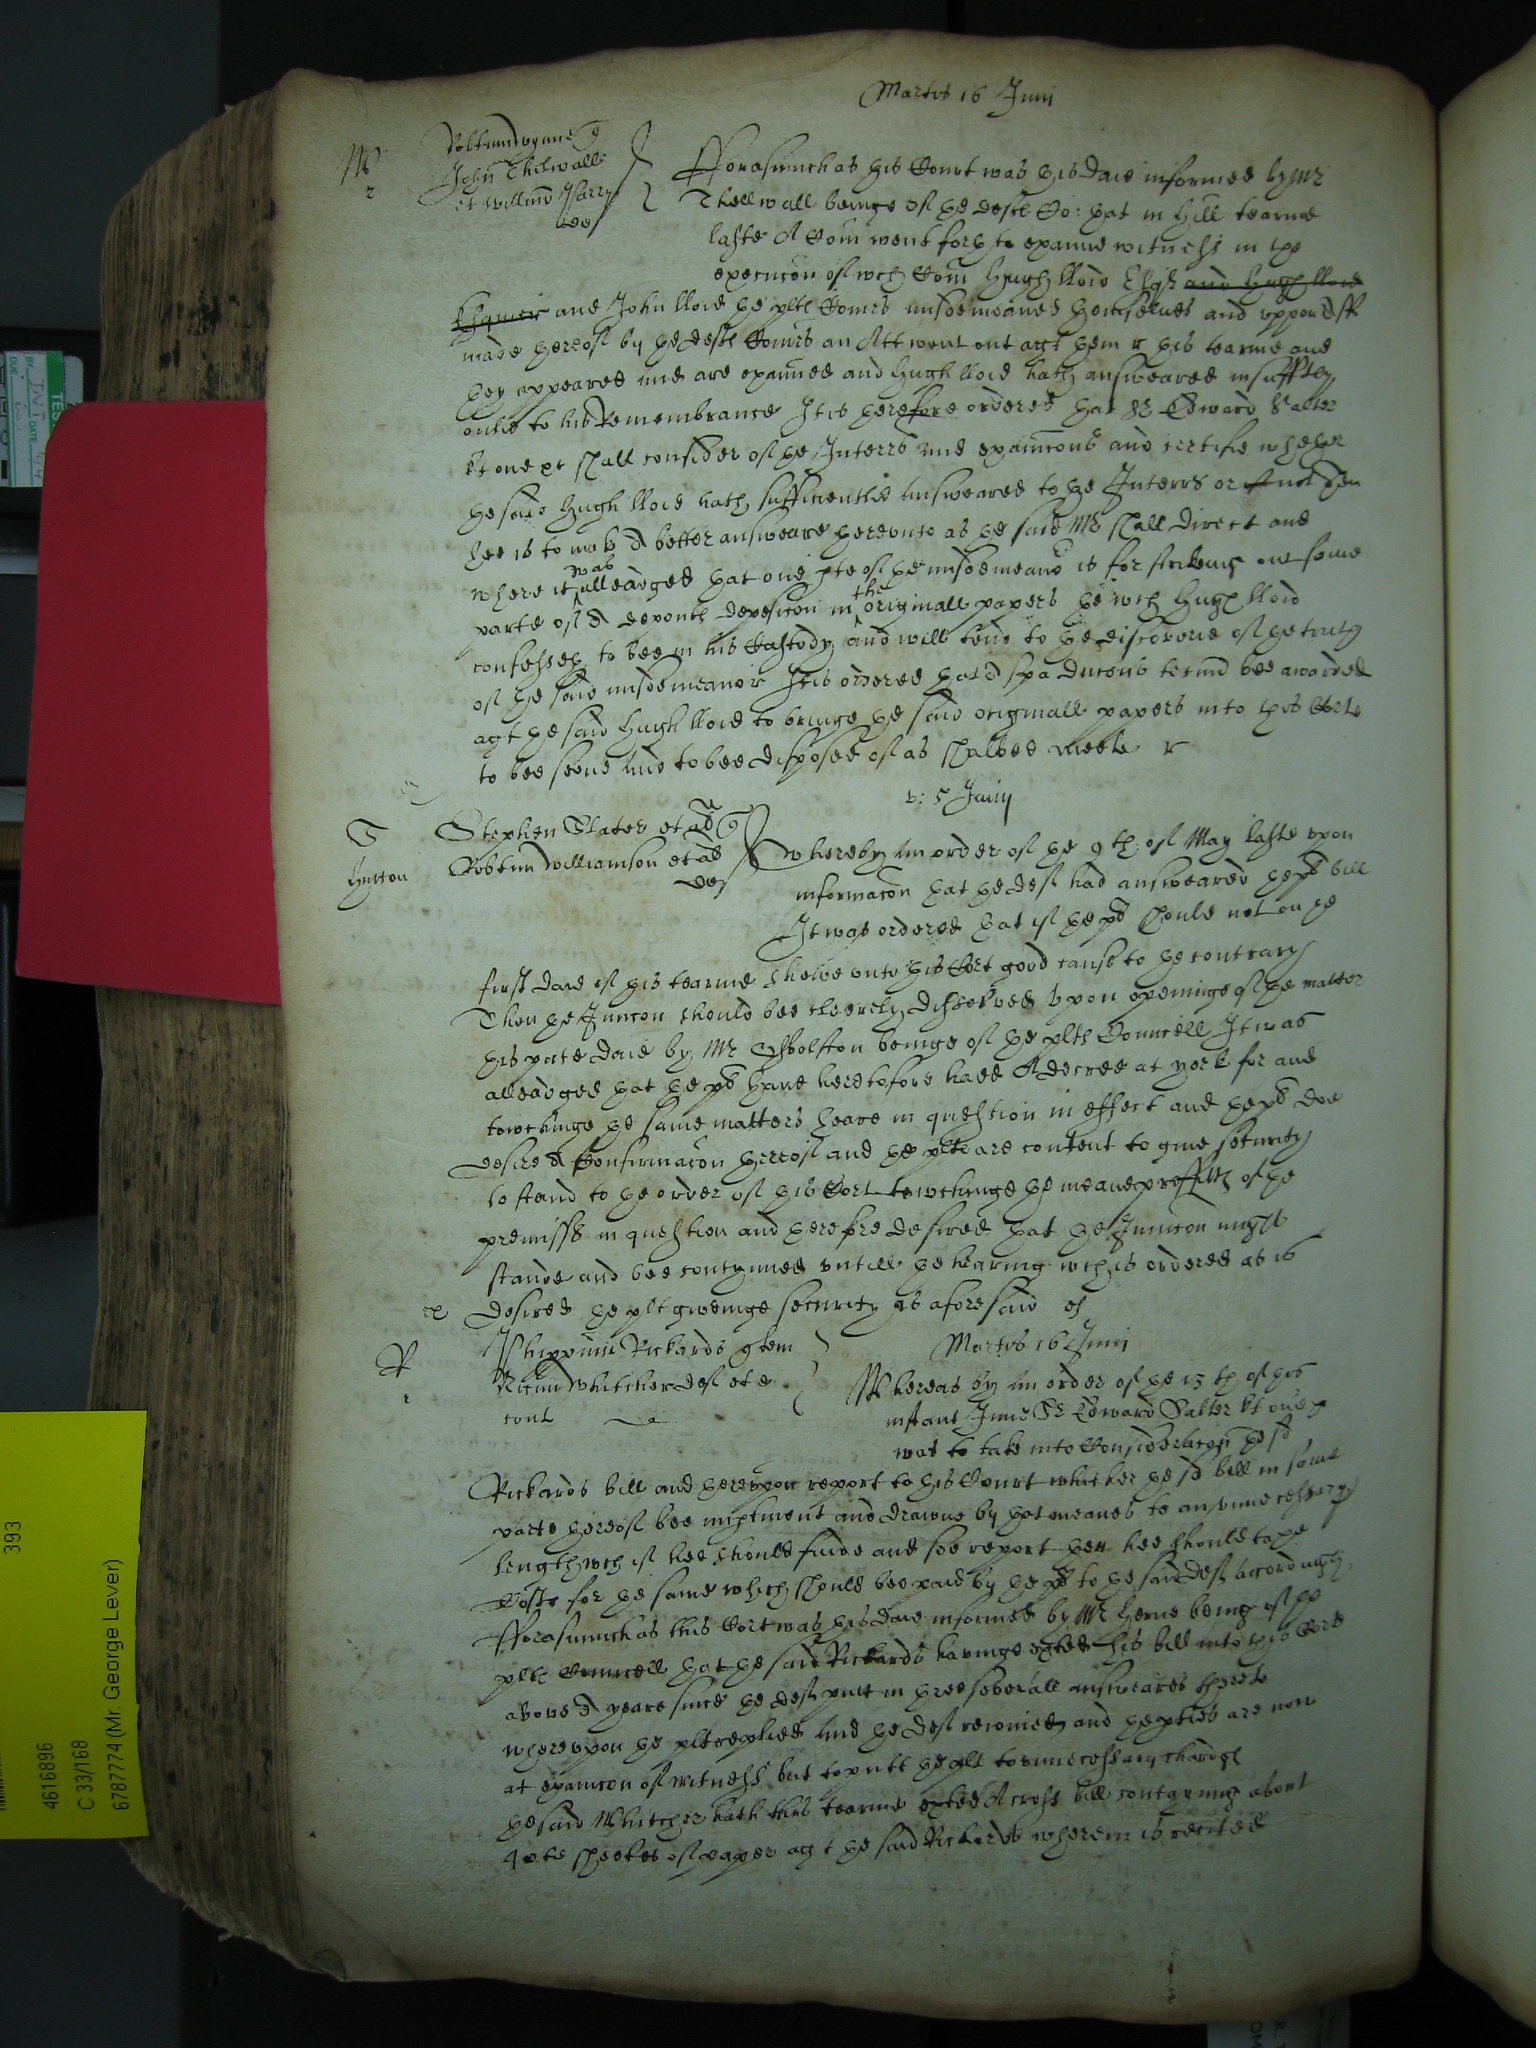 Martis 16 Junij
W
Robtum Wynne q
John Thelwall
et Willmo Parry
def
Fforasmuch as this Court was this daie informed by Mr
Thellwall beinge of the deftes Co: that in Hill tearme
laste A Com went forth to examine witnesses in the
execucon of wch Com Hugh lloid Esqr and Hugh lloid
and John lloid the pltes Comrs misdemeaned themselves and uppon
made thereof by the deftes Comrs an Att went out agt them & this tearme and
they appeared and are examined and Hugh lloid hath answeared insufftly
onlie to his Remembrance It is therefore ordered that Sr Edward Salter
kt one &c shall consider of the Interrs and examcons and certifie whether
the said Hugh lloid hath sufficientlie answeared to the Interrs or
hee is to make A better answeare thereunto as the said Mr shall direct and
where it was alleadged that one pte of the misdemeanor is for strikeing out some
parte of A deponts deposicon in the originall papers the wch Hugh lloid
confesseth to bee in his Custody and will tend to the discoverie of the truth
of the said misdemeanor It is ordered that A spa ducens tecum bee awarded
agt the said Hugh lloid to bringe the said originall papers into this Corte
to bee seene and to bee disposed of as shalbee meete
v: 5 Junij
S
Hutton
Stephen Slater et al q
Robtum Williamson et al
def
Whereby an order of the 9th of May laste upon
informacon that the deft had answeared the pl bill
It was ordered that if the pl should not on the
first daie of this tearme shewe unto this Cort good cause to the contrary
Then the Juncon should bee cleerely dissolved Upon openinge of the matter
this pnte daie by Mr beinge of the pltes Councell It was
alleadged that the pl have heretofore haed A decree at york for and
towchinge the same matters heare in question in effect and the pl doe
desire A Confirmacon thereof and the pltes are content to give security
to stand to the order of this Cort towchinge the meane proffitts of the
premisses in question and therefore desired that the Juncon might
stande and bee contynued untill the hearing wch is ordered as is
desired the plt giveinge security as aforesaid
R
Phippum Rickards q tem
Ricum Whitcher def et e
cont
Martis 16 Junij
Whereas by an order of the 13th of this
instant June Sr Edward Salter kt one &
was to take into Consideracon the sd
Rickards bill and thereupon report to this Court whether the sd bill in some
parte thereof bee impertinent and drawne by that meanes to an unnecessary
length wch if hee should finde and soe report then hee should taxe
Costs for the same which should bee paid by the pl to the said deft accordingly
Fforasmuch as this Cort was this daie informed by Mr Herne being of the
pltes Councell that the said Rickards havinge exhted his bill into this Corte
above A yeare since the deft putt in three severall answeares thereto
whereupon the plt replied and the deft rejoined and the pties are now
at examcon of witnesses but to putt the plt to unnecessary chardge
the said Whitcher hath this tearme exhted A cross bill contayning about
sheetes of paper agt the said Rickards wherein is recited
393
4616896
C 33/168
6787774 (Mr. George Lever)